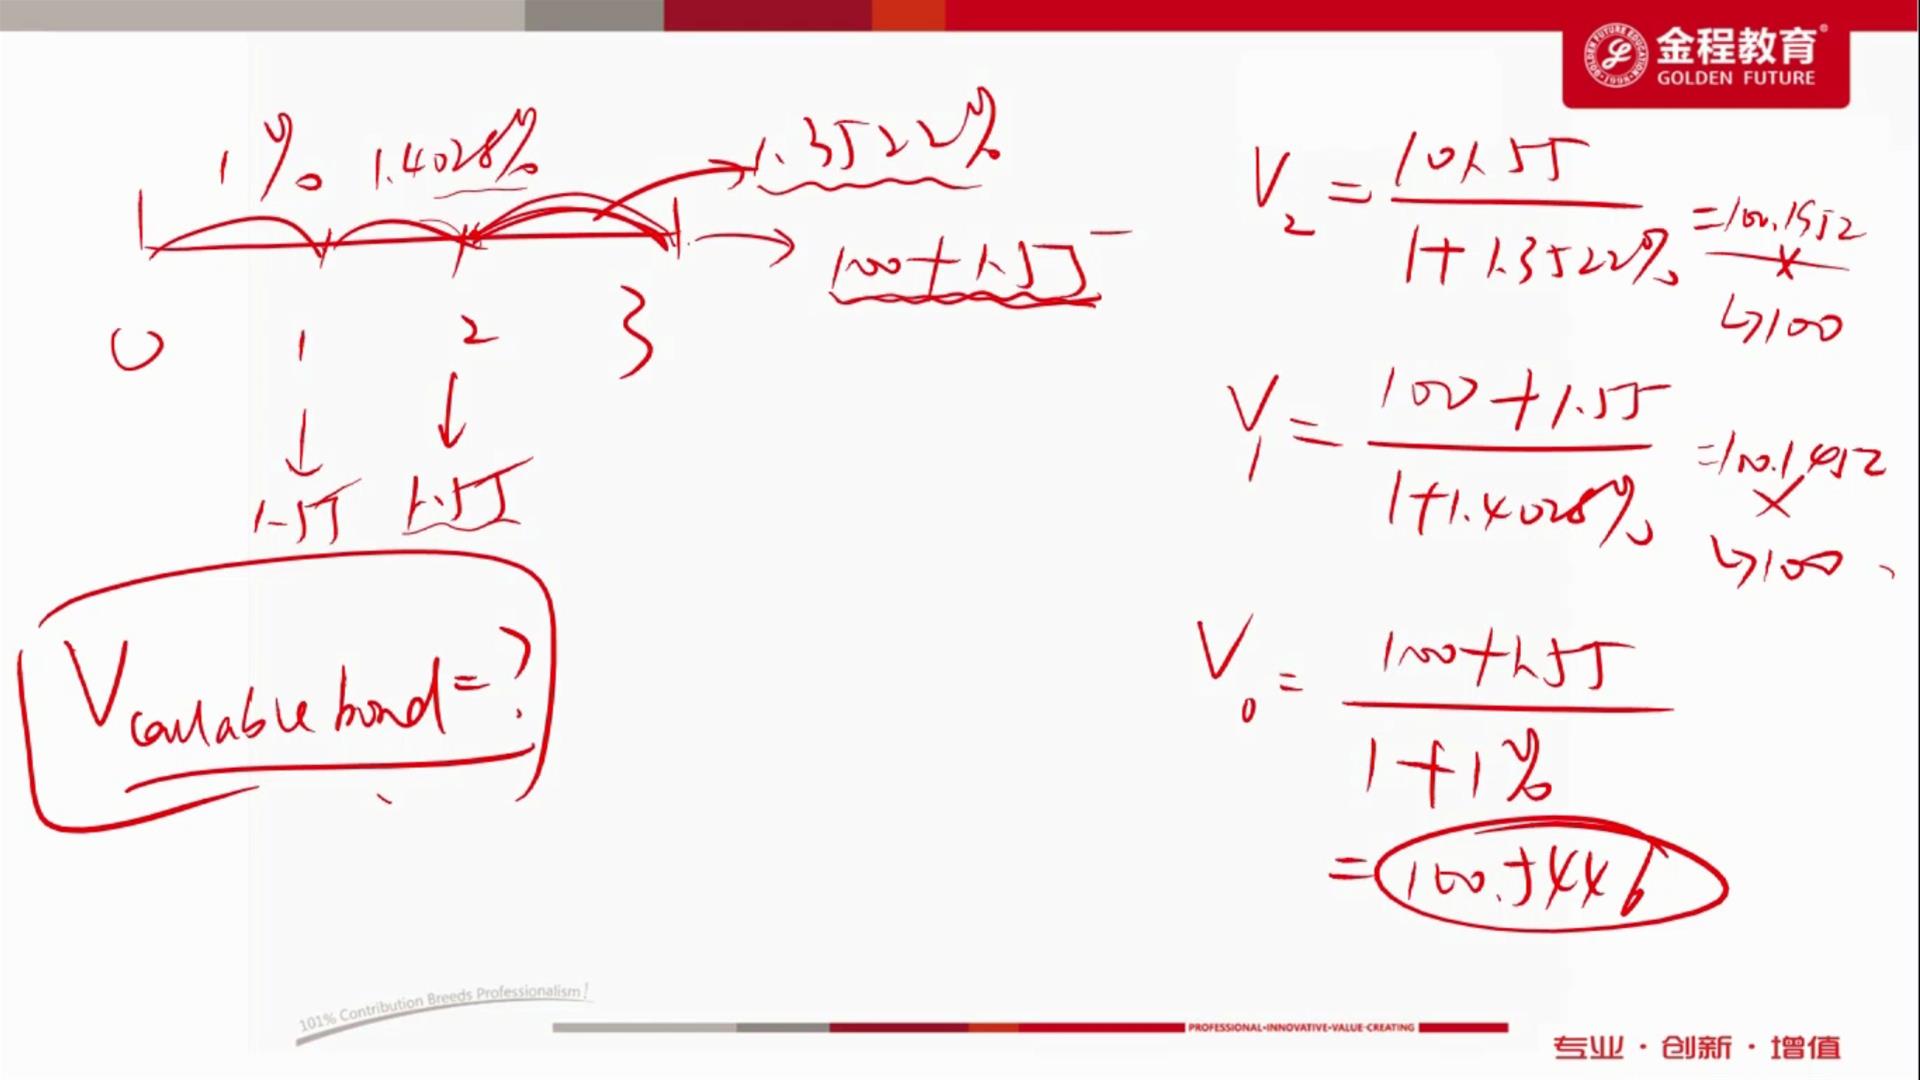 金程教育
GOLDEN FUTURE
1% 1.4028% 1.3522%
100+1.55
0 1 2 3
1.55 1.55
V callable bond = ?
V2 = 101.55 / 1+1.3522% = 100.1952
↳100
V1 = 100+1.55 / 1+1.4028% = 100.1452
↳100
V0 = 100+1.55 / 1+1%
= 100.5446
101% Contribution Breeds Professionalism!
PROFESSIONAL•INNOVATIVE•VALUE-CREATING
专业·创新·增值